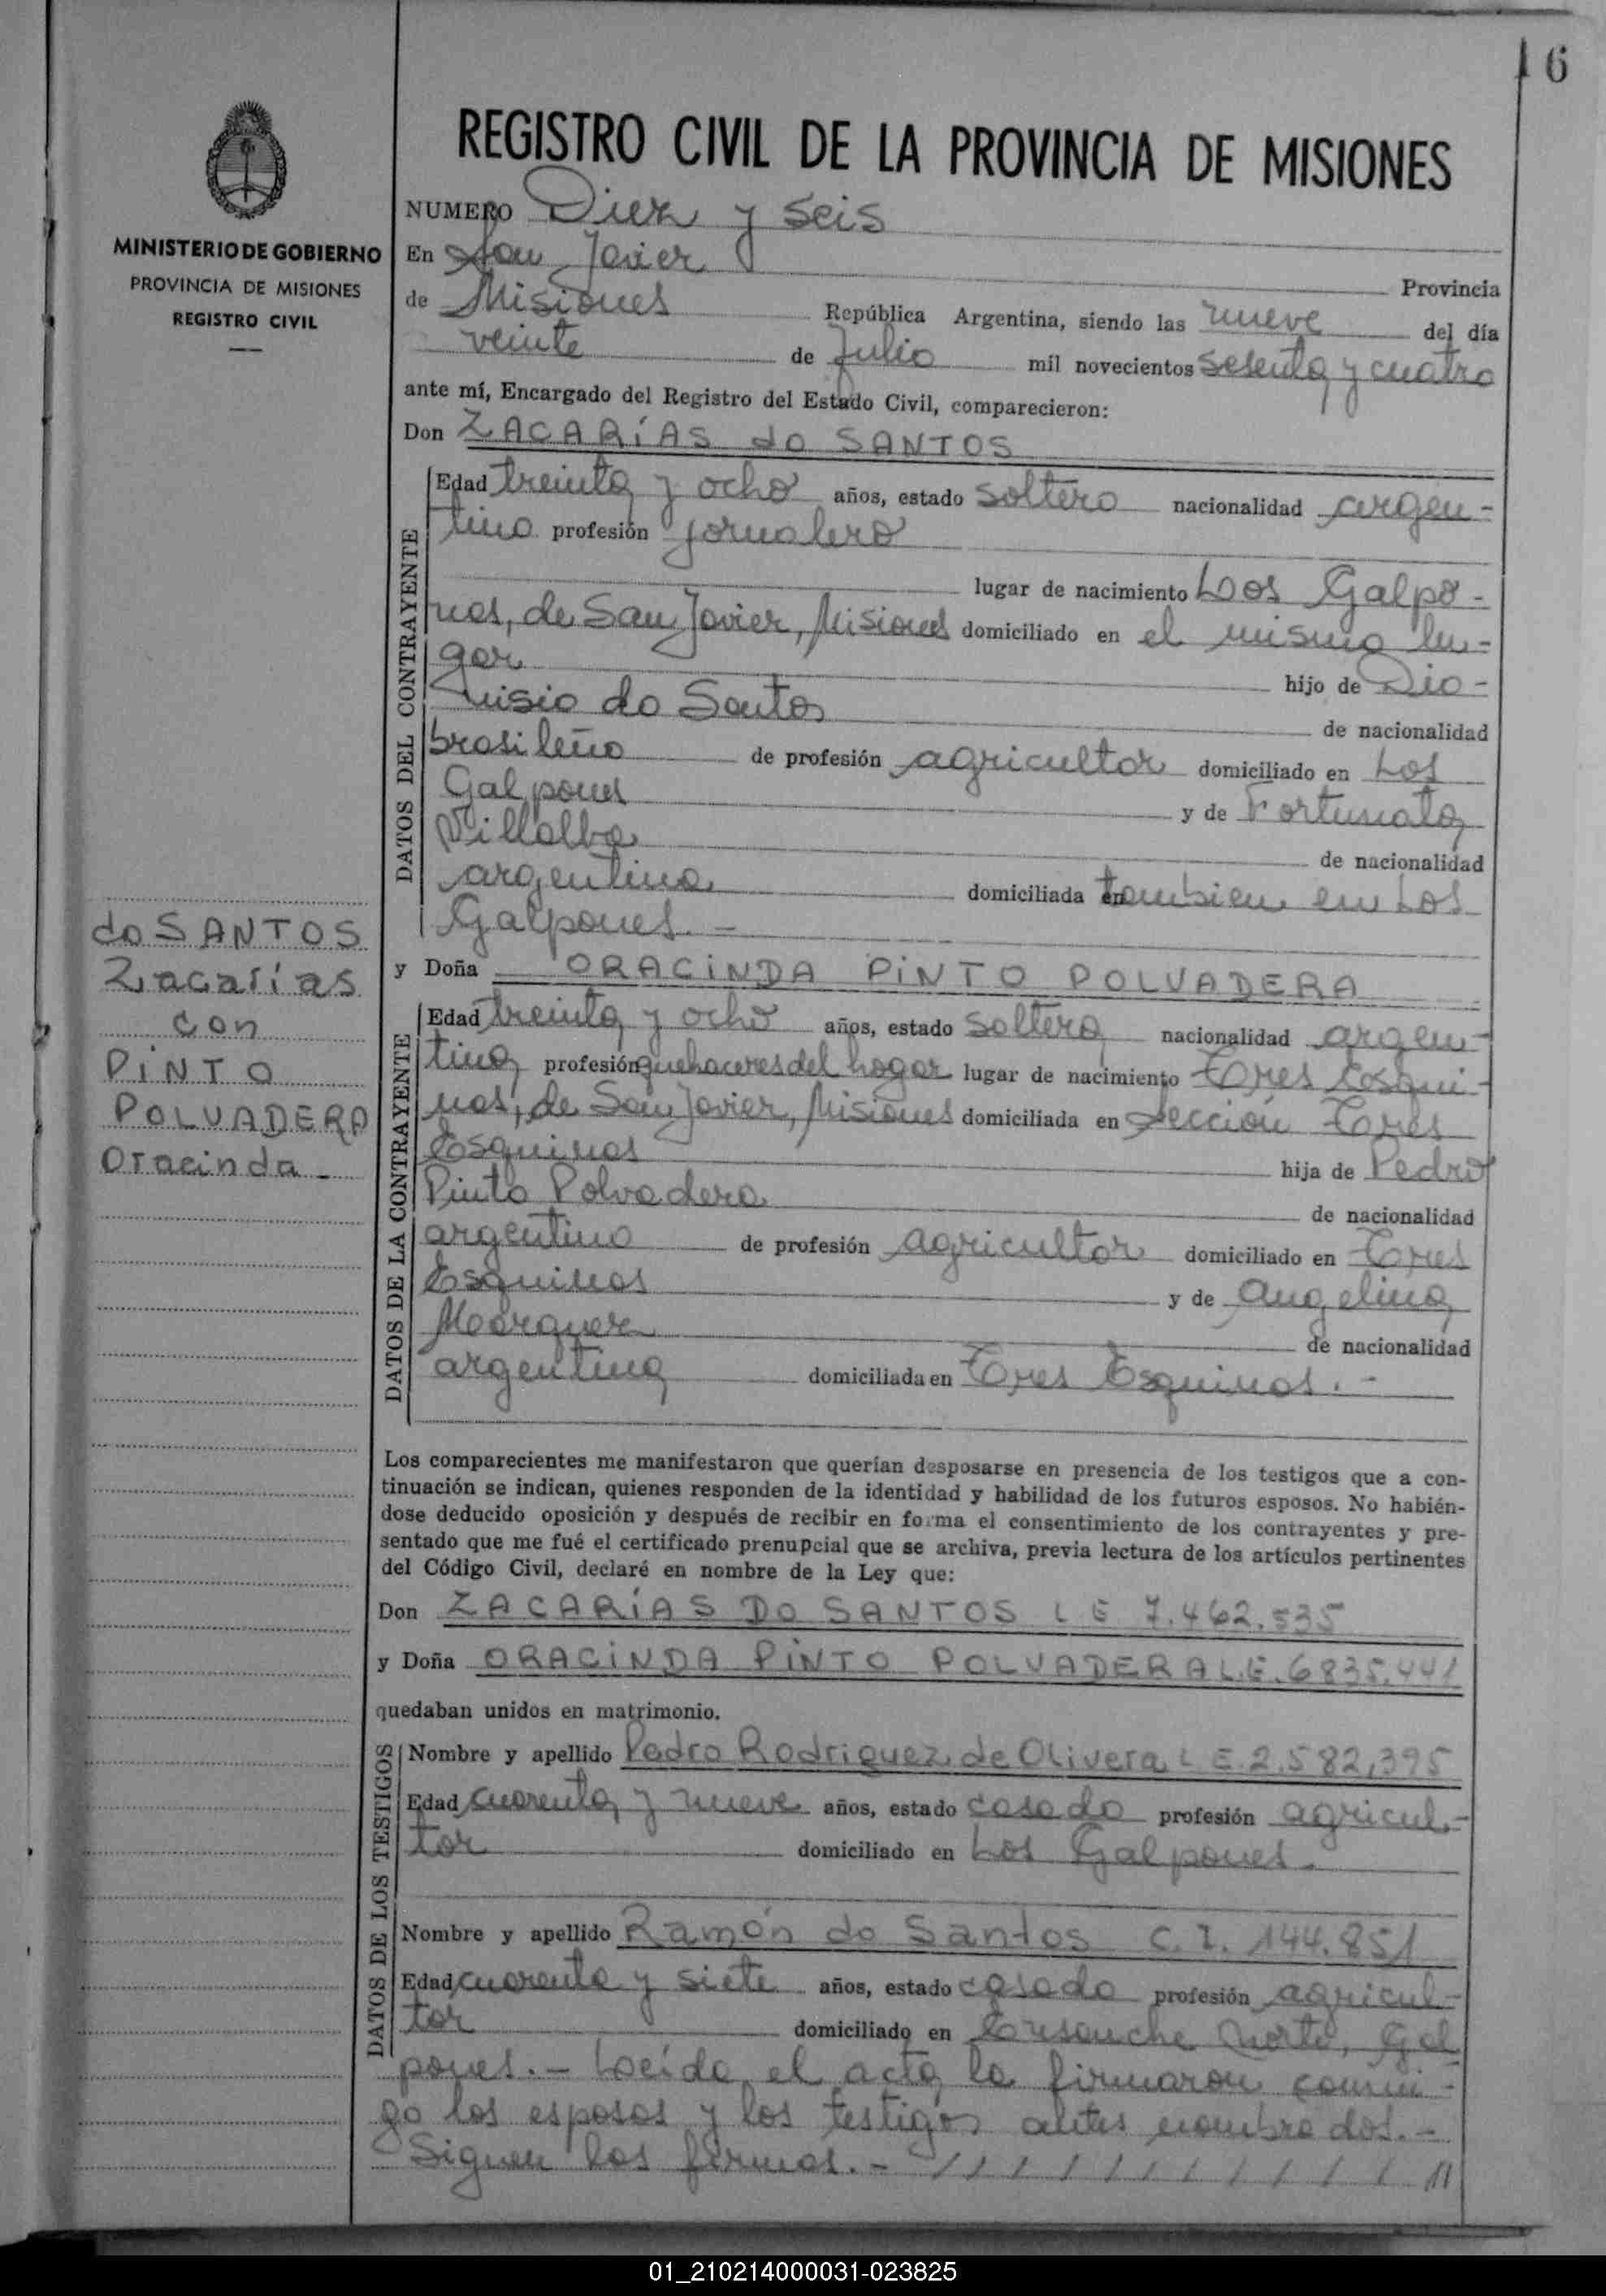 16
MINISTERIO DE GOBIERNO
PROVINCIA DE MISIONES
REGISTRO CIVIL
do SANTOS
Zacarías
con
PINTO
POLVADERA
Oracinda
REGISTRO CIVIL DE LA PROVINCIA DE MISIONES
NUMERO Diez y seis
En San Javier
Provincia
de Misiones República Argentina, siendo las nueve del día
veinte de Julio mil novecientos sesenta y cuatro
ante mí, Encargado del Registro del Estado Civil, comparecieron:
Don ZACARÍAS do SANTOS
DATOS DEL CONTRAYENTE
Edad treinta y ocho años, estado soltero nacionalidad argen-
tino profesión jornalero
lugar de nacimiento Los Galpo-
nes, de San Javier, Misiones domiciliado en el mismo lu-
gar hijo de Dio-
nisio do Santos de nacionalidad
brasileño de profesión agricultor domiciliado en Los
Galpones y de Fortunata
Villalba de nacionalidad
argentina domiciliada en tambien en Los
Galpones.-
y Doña ORACINDA PINTO POLVADERA
DATOS DE LA CONTRAYENTE
Edad treinta y ocho años, estado soltera nacionalidad argen-
tina profesión quehaceres del hogar lugar de nacimiento Tres Esqui-
nas, de San Javier, Misiones domiciliada en Sección Tres
Esquinas hija de Pedro
Pinto Polvadera de nacionalidad
argentino de profesión agricultor domiciliado en Tres
Esquinas y de Angelina
Marquez de nacionalidad
argentina domiciliada en Tres Esquinas.-
Los comparecientes me manifestaron que querían desposarse en presencia de los testigos que a con-
tinuación se indican, quienes responden de la identidad y habilidad de los futuros esposos. No habién-
dose deducido oposición y después de recibir en forma el consentimiento de los contrayentes y pre-
sentado que me fué el certificado prenupcial que se archiva, previa lectura de los artículos pertinentes
del Código Civil, declaré en nombre de la Ley que:
Don ZACARÍAS DO SANTOS L E 7.462.535
y Doña ORACINDA PINTO POLVADERA L.E. 6835.441
quedaban unidos en matrimonio.
DATOS DE LOS TESTIGOS
Nombre y apellido Pedro Rodriguez de Olivera L E. 2.582,395
Edad cuarenta y nueve años, estado casado profesión agricul-
tor domiciliado en Los Galpones.
Nombre y apellido Ramón do Santos C. I. 144.851
Edad cuarenta y siete años, estado casado profesión agricul-
tor domiciliado en Ensanche Norte, Gal
pones.- Leída el acta la firmaron conmi-
go los esposos y los testigos antes nombrados.-
Siguen las firmas.- / / / / / / / / / / //
01_210214000031-023825